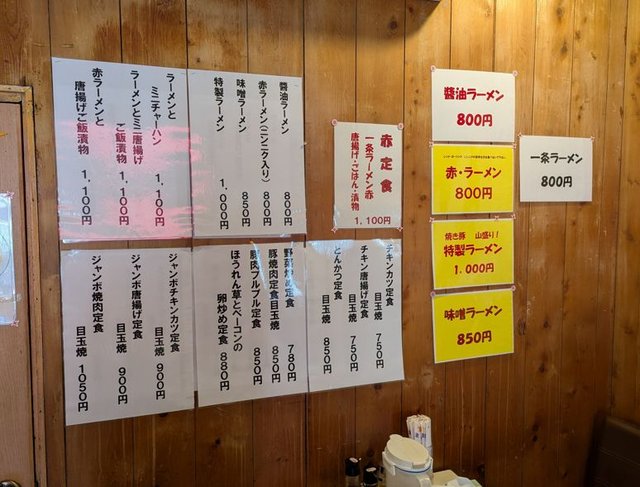 醬油ラーメン 800円
赤ラーメン(ニンニク入り) 800円
味噌ラーメン 850円
特製ラーメン 1,000円
ラーメンと
ミニチャーハン 1,100円
ラーメンとミニ唐揚げ
ご飯漬物 1,100円
赤ラーメンと
唐揚げご飯漬物 1,100円
赤定食
一条ラーメン赤
唐揚げ・ごはん・漬物
1,100円
醬油ラーメン
800円
赤・ラーメン
800円
焼き豚 山盛り!
特製ラーメン
1,000円
味噌ラーメン
850円
一条ラーメン
800円
チキンカツ定食
目玉焼 750円
チキン唐揚げ定食
目玉焼 750円
とんかつ定食
目玉焼 850円
野菜炒め定食 780円
豚焼肉定食目玉焼 850円
豚肉プルプル定食 850円
ほうれん草とベーコンの
卵炒め定食 880円
ジャンボチキンカツ定食
目玉焼 900円
ジャンボ唐揚げ定食
目玉焼 900円
ジャンボ焼肉定食
目玉焼 1050円